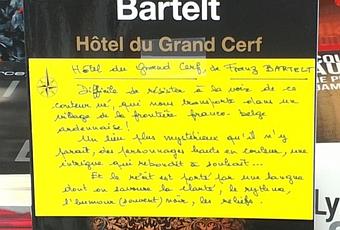 Bartelt
Hôtel du Grand Cerf
Hôtel du Grand Cerf, de Franz BARTELT
Difficile de résister à la voix de ce
conteur né, qui nous transporte dans un
village de la frontière franco-belge
ardennaise.
Un lieu plus mystérieux qu'il n'y
paraît, des personnages hauts en couleur, une
intrigue qui rebondit à souhait...
Et le récit est porté par une langue
dont on savoure la clarté, le rythme,
l'humour (souvent) noir, les reliefs.
FAU
JAM
Ly